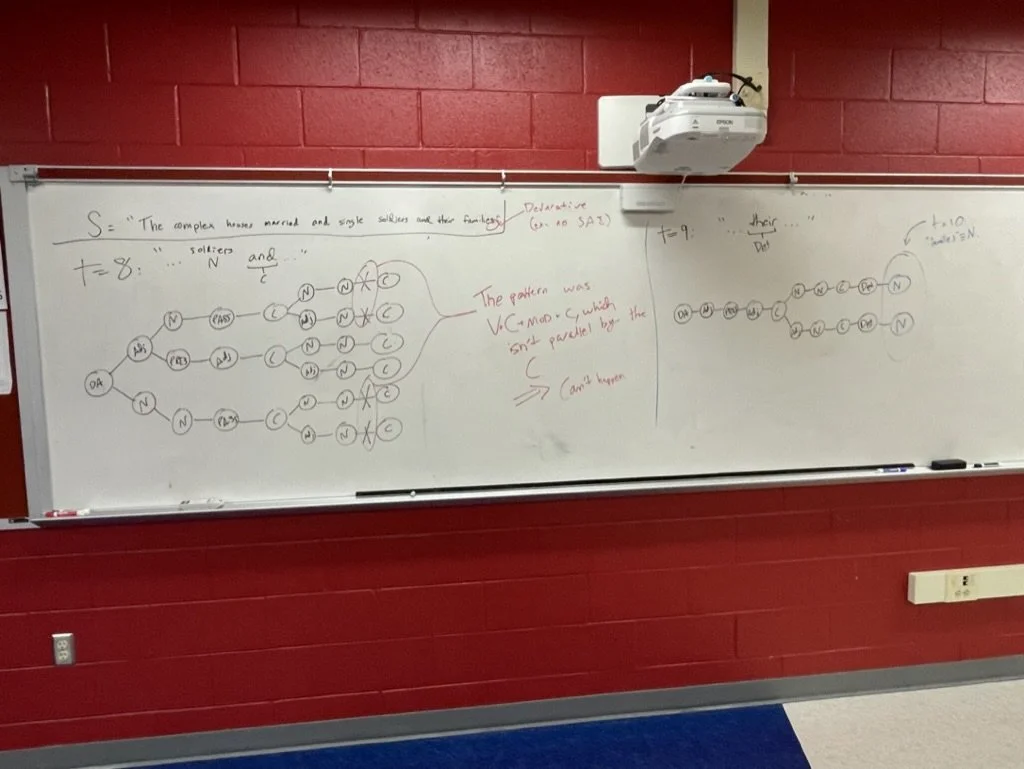 S = "The complex houses married and single soldiers and their families."
Declarative
(ex. no SAI)
t=8: "... soldiers and ..."
N C
N PASS C N N X C
Adj Adj N X C
DA Adj PAST Adj C N N C
Adj N C
N N PAST C N N X C
Adj N X C
The pattern was
V+C+MOD+C, which
isn't parallel by the
C
⇒ Can't happen
t=9: "... their ..."
Det
t=10
"families" = N.
DA Adj Adj C N N C Det N
N C Det N
EPSON